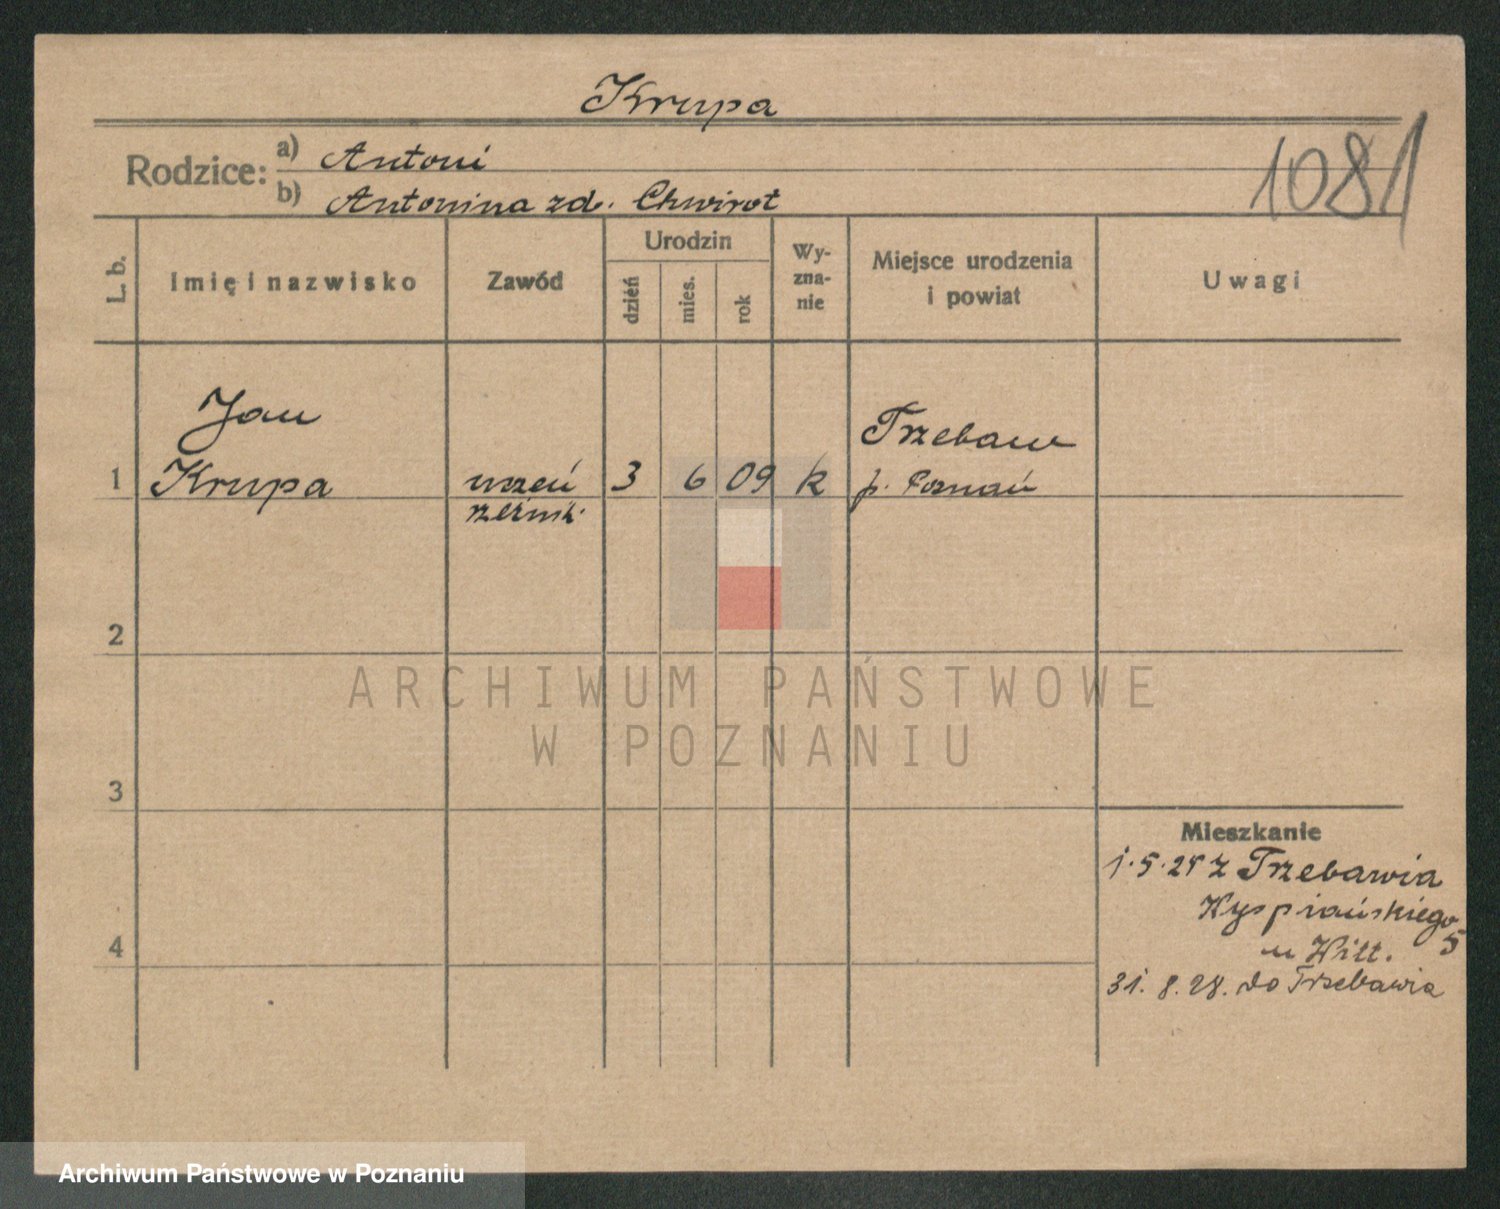 Krupa
Rodzice: a) Antoni
b) Antonina zd. Chwirot
1081
L. b.
Imię i nazwisko
Zawód
Urodzin
dzień
mies.
rok
Wy-
zna-
nie
Miejsce urodzenia
i powiat
Uwagi
Jan
Trzebaw
1 Krupa uczeń 3 6 09 k p. Poznań
rzeźnik
2
ARCHIWUM PAŃSTWOWE
W POZNANIU
3
Mieszkanie
1.5.25 z Trzebawia
Wyspiańskiego
5
u Witt.
4
31. 8. 28. do Trzebawia
Archiwum Państwowe w Poznaniu